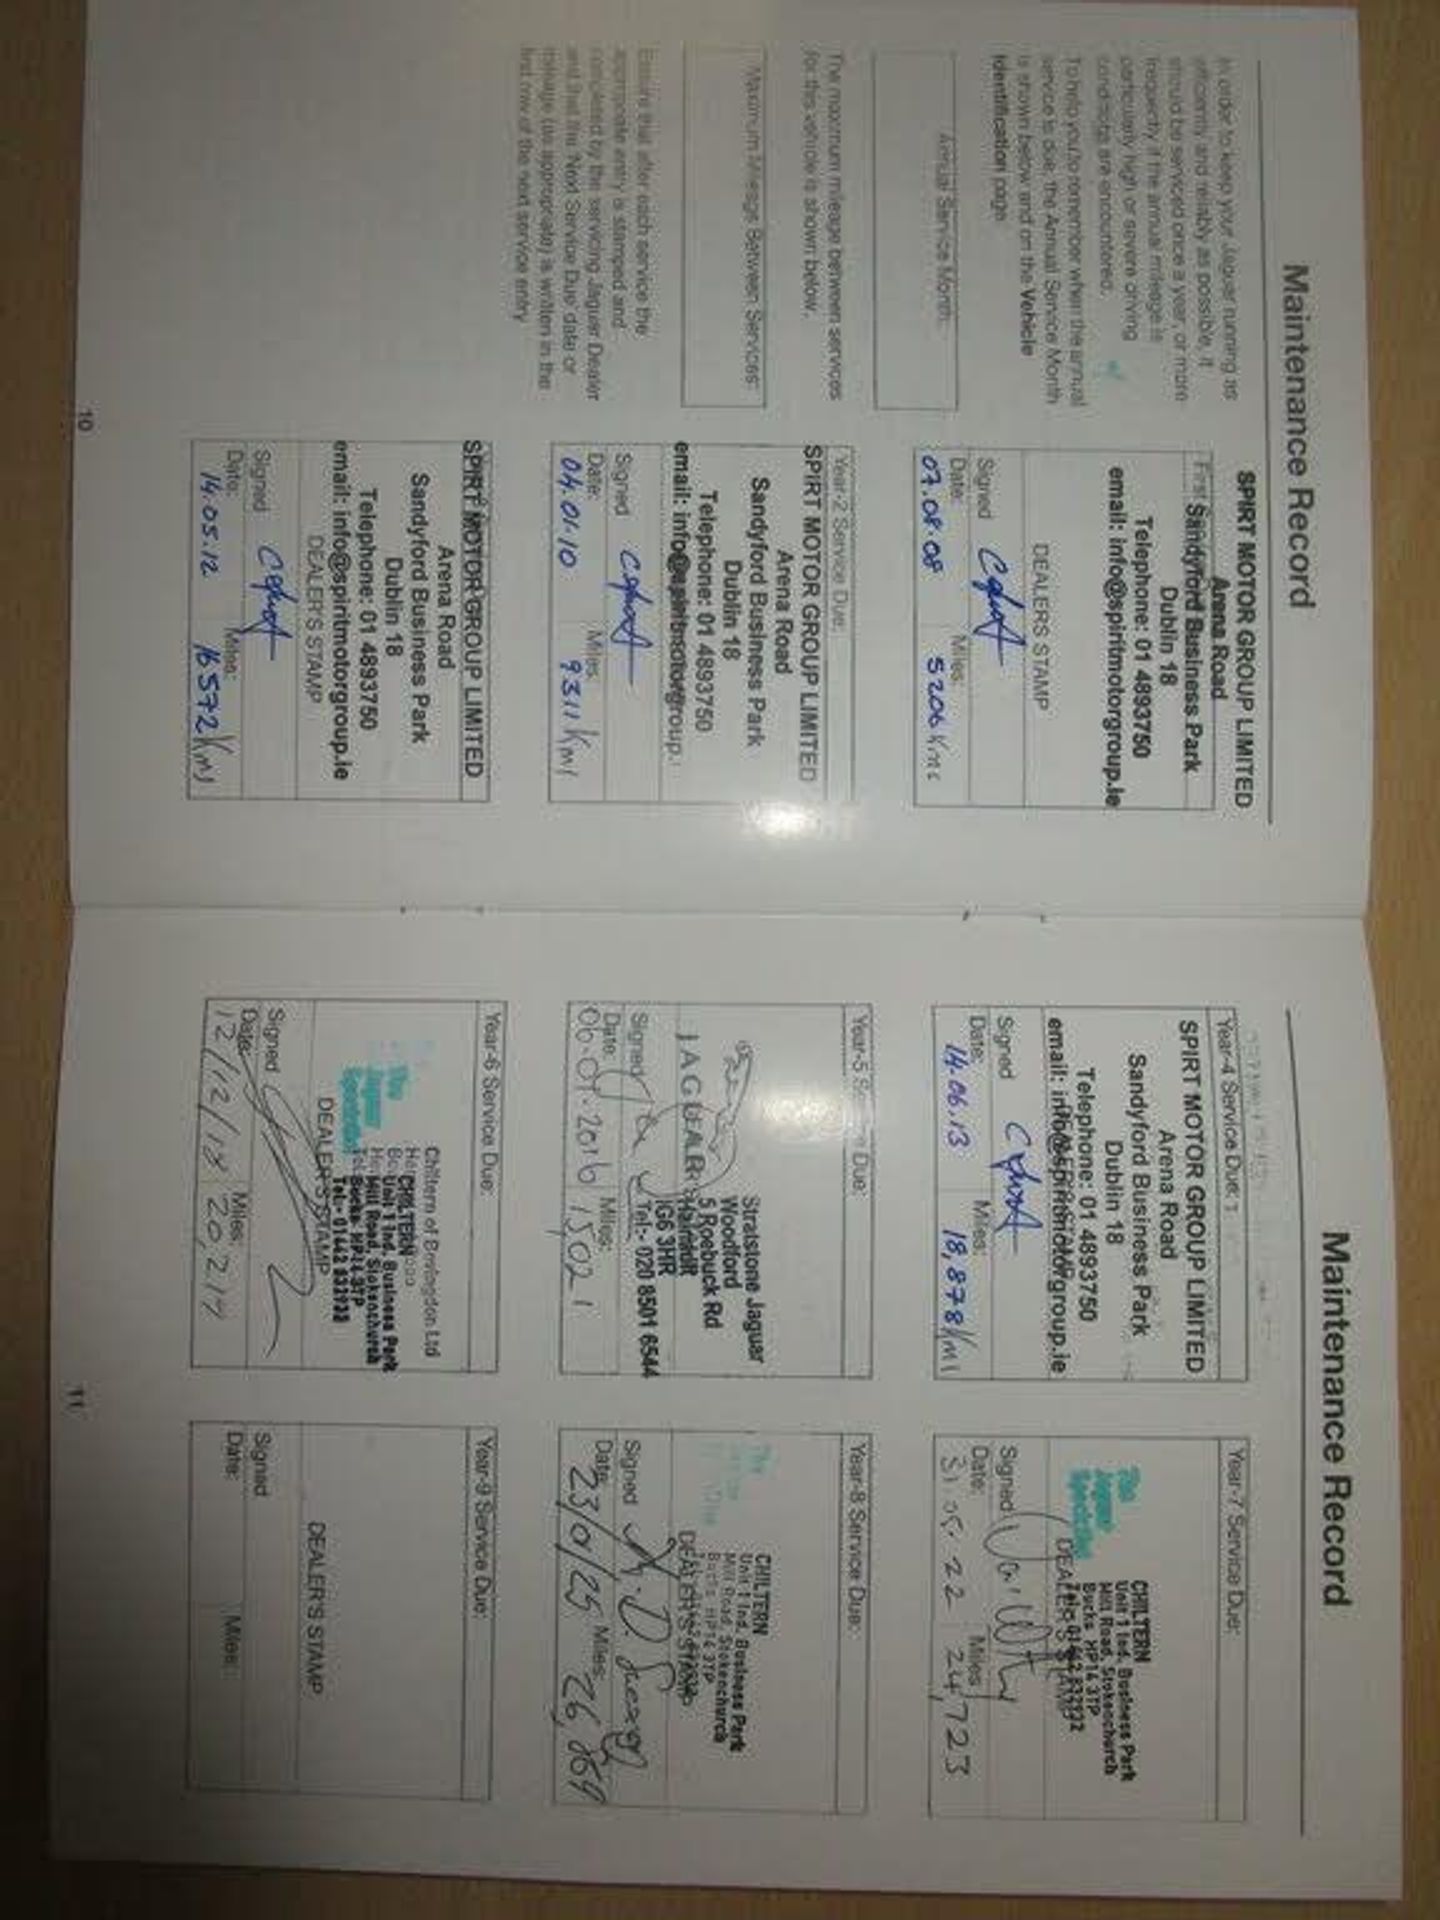 Maintenance Record
In order to keep your Jaguar running as
efficiently and reliably as possible, it
should be serviced once a year, or more
frequently if the annual mileage is
particularly high or severe driving
conditions are encountered.
To help you to remember when the annual
service is due, the Annual Service Month
is shown below and on the Vehicle
Identification page.
Annual Service Month:
The maximum mileage between services
for this vehicle is shown below.
Maximum Mileage Between Services:
Ensure that after each service the
appropriate entry is stamped and
completed by the servicing Jaguar Dealer
and that the 'Next Service Due' date or
mileage (as appropriate) is written in the
first row of the next service entry.
SPIRT MOTOR GROUP LIMITED
Arena Road
First Sandyford Business Park
Dublin 18
Telephone: 01 4893750
email: info@spiritmotorgroup.ie
DEALER'S STAMP
Signed
Date: Miles:
07.08.08 5206 Kms
Year-2 Service Due:
SPIRT MOTOR GROUP LIMITED
Arena Road
Sandyford Business Park
Dublin 18
Telephone: 01 4893750
email: info@spiritmotorgroup.
Signed
Date: Miles:
04.01.10 9311 Kms
SPIRT MOTOR GROUP LIMITED
Arena Road
Sandyford Business Park
Dublin 18
Telephone: 01 4893750
email: info@spiritmotorgroup.ie
DEALER'S STAMP
Signed
Date: Miles:
14.05.12 16572 Kms
10
Maintenance Record
Year-4 Service Due:
SPIRT MOTOR GROUP LIMITED
Arena Road
Sandyford Business Park
Dublin 18
Telephone: 01 4893750
email: info@spiritmotorgroup.ie
Signed
Date: Miles:
14.06.13 18,878 Kms
Year-5 Service Due:
JAGUAR
Stratstone Jaguar
Woodford
5 Roebuck Rd
Hainault
IG6 3HR
Tel:- 020 8501 6544
Signed
Date: Miles:
06.07.2016 15,021
Year-6 Service Due:
Chiltern of Bovingdon Ltd
The
Jaguar
Specialist
CHILTERN
Unit 1 Ind. Business Park
Mill Road, Stokenchurch
Bucks HP14 3TP
Tel:- 01442 832932
DEALER'S STAMP
Signed
Date: Miles:
12/12/18 20,217
Year-7 Service Due:
The
Jaguar
Specialist
CHILTERN
Unit 1 Ind. Business Park
Mill Road, Stokenchurch
Bucks HP14 3TP
DEALER'S STAMP
Signed
Date: Miles
31.05.22 24,723
Year-8 Service Due:
The
CHILTERN
Unit 1 Ind. Business Park
Mill Road, Stokenchurch
Bucks HP14 3TP
DEALER'S STAMP
Signed
Date: Miles:
23/01/25 26,869
Year-9 Service Due:
DEALER'S STAMP
Signed
Date: Miles:
11